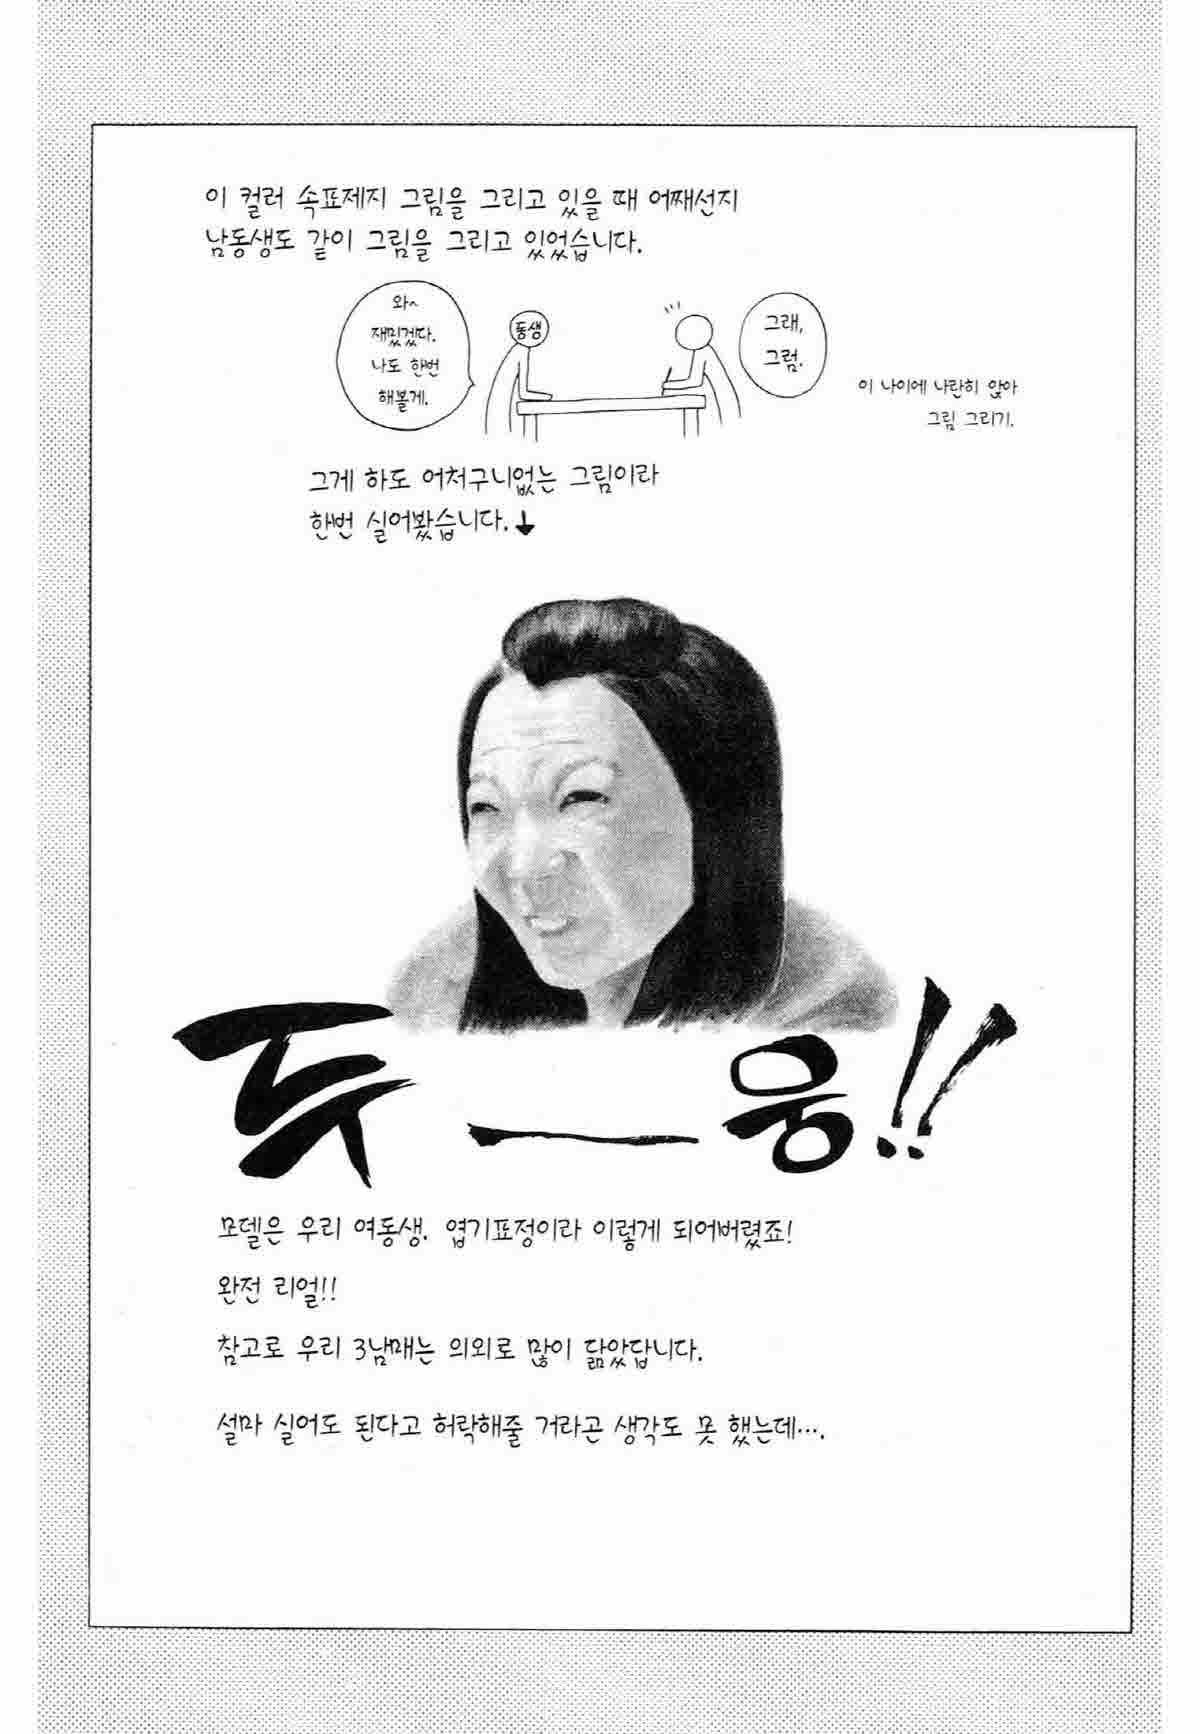 이 컬러 속표제지 그림을 그리고 있을 때 어째선지
남동생도 같이 그림을 그리고 있었습니다.
와~
재밌겠다.
나도 한번
해볼게.
동생
그래,
그럼.
이 나이에 나란히 앉아
그림 그리기.
그게 하도 어처구니없는 그림이라
한번 실어봤습니다.↓
두—웅!!
모델은 우리 여동생. 엽기표정이라 이렇게 되어버렸죠!
완전 리얼!!
참고로 우리 3남매는 의외로 많이 닮았답니다.
설마 실어도 된다고 허락해줄 거라곤 생각도 못 했는데….